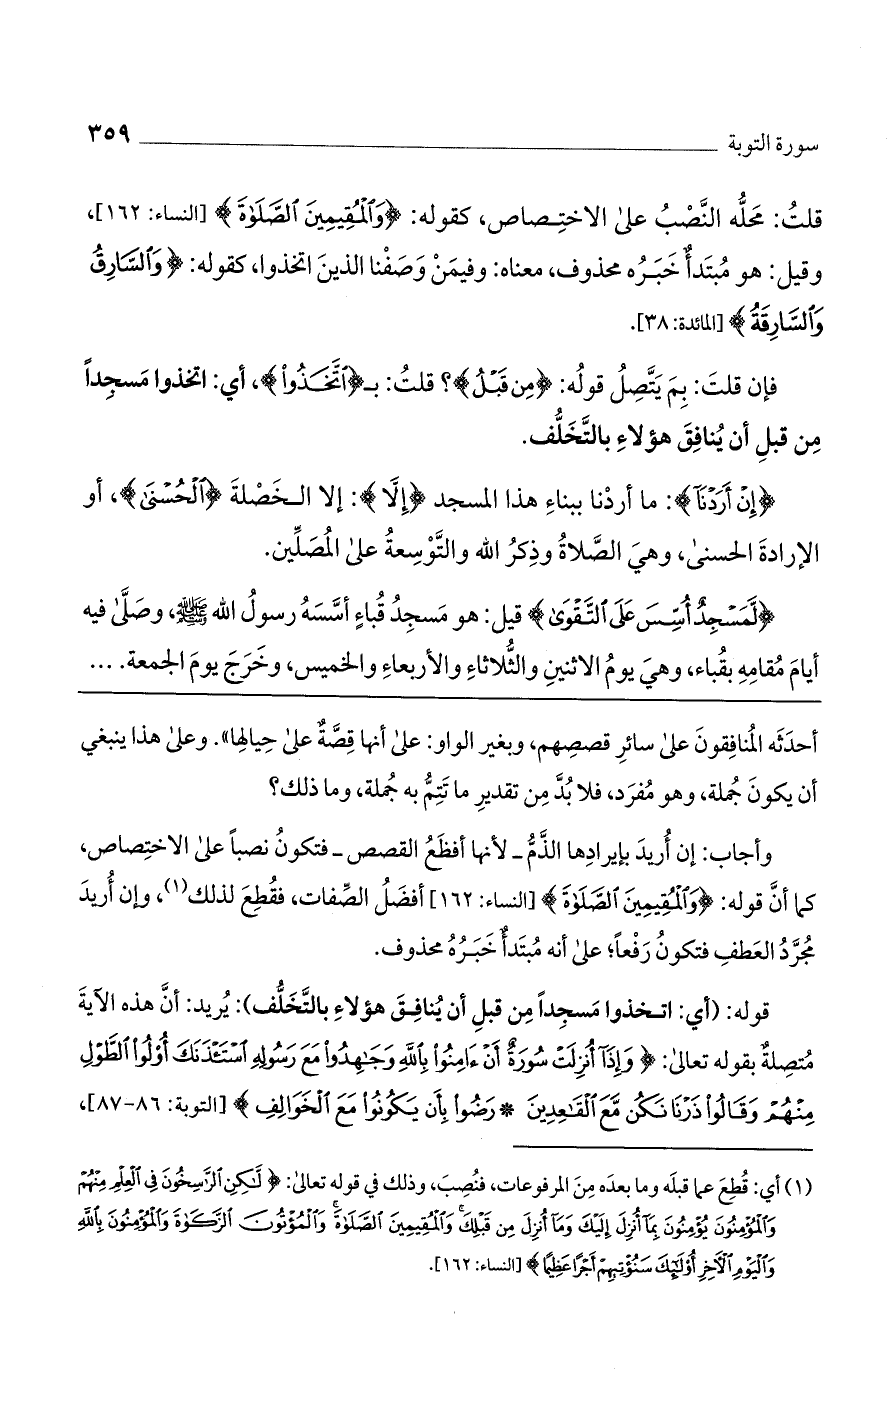 سورة التوبة ٣٥٩
قلتُ: مَحلُّه النَّصْبُ علىٰ الاختِـصاص، كقوله: ﴿وَٱلْمُقِيمِينَ ٱلصَّلَوٰةَ﴾ [النساء: ١٦٢]،
وقيل: هو مُبتَدأٌ خَبَـرُه محذوف، معناه: وفيمَنْ وَصَفْنا الذينَ اتخذوا، كقوله: ﴿وَٱلسَّارِقُ
وَٱلسَّارِقَةُ﴾ [المائدة: ٣٨].
فإن قلتَ: بِمَ يَتَّصِلُ قولُه: ﴿مِن قَبْلُ﴾؟ قلتُ: بـ﴿ٱتَّخَذُوا۟﴾، أي: اتخذوا مَسجِداً
مِن قبلِ أن يُنافِقَ هؤلاءِ بالتَّخَلُّف.
﴿إِنْ أَرَدْنَآ﴾: ما أردْنا ببناءِ هذا المسجد ﴿إِلَّا﴾: إلا الـخَصْلةَ ﴿ٱلْحُسْنَىٰ﴾، أو
الإرادةَ الحسنىٰ، وهيَ الصَّلاةُ وذِكرُ الله والتَّوْسِعةُ علىٰ المُصَلِّين.
﴿لَّمَسْجِدٌ أُسِّسَ عَلَى ٱلتَّقْوَىٰ﴾ قيل: هو مَسجِدُ قُباءٍ أسَّسَهُ رسولُ الله ﷺ، وصَلَّىٰ فيه
أيامَ مُقامِهِ بقُباء، وهيَ يومُ الاثنينِ والثُّلاثاءِ والأربعاءِ والخميس، وخَرَجَ يومَ الجمعة. ...
أحدَثَه المُنافِقونَ علىٰ سائرِ قصصِهم، وبغير الواو: علىٰ أنها قِصَّةٌ علىٰ حِيالِها». وعلىٰ هذا ينبغي
أن يكونَ جُملة، وهو مُفرَد، فلا بُدَّ مِن تقديرِ ما تَتِمُّ به جُملة، وما ذلك؟
وأجاب: إن أُريدَ بإيرادِها الذَّمُّ ـ لأنها أفظَعُ القصص ـ فتكونُ نصباً علىٰ الاختِصاص،
كما أنَّ قوله: ﴿وَٱلْمُقِيمِينَ ٱلصَّلَوٰةَ﴾ [النساء: ١٦٢] أفضَلُ الصِّفات، فقُطِعَ لذلك(١)، وإن أُريدَ
مُجرَّدُ العَطفِ فتكونُ رَفْعاً؛ علىٰ أنه مُبتَدأٌ خَبَـرُهُ محذوف.
قوله: (أي: اتـخذوا مَسجِداً مِن قبلِ أن يُنافِـقَ هؤلاءِ بالتَّخَلُّف): يُريد: أنَّ هذه الآيةَ
مُتصِلةٌ بقوله تعالىٰ: ﴿وَإِذَآ أُنزِلَتْ سُورَةٌ أَنْ ءَامِنُوا۟ بِٱللَّهِ وَجَـٰهِدُوا۟ مَعَ رَسُولِهِ ٱسْتَـْٔذَنَكَ أُو۟لُوا۟ ٱلطَّوْلِ
مِنْهُمْ وَقَالُوا۟ ذَرْنَا نَكُن مَّعَ ٱلْقَـٰعِدِينَ * رَضُوا۟ بِأَن يَكُونُوا۟ مَعَ ٱلْخَوَالِفِ﴾ [التوبة: ٨٦-٨٧]،
(١) أي: قُطِعَ عما قبلَه وما بعدَه مِنَ المرفوعات، فنُصِبَ، وذلك في قوله تعالىٰ: ﴿لَّـٰكِنِ ٱلرَّٰسِخُونَ فِى ٱلْعِلْمِ مِنْهُمْ
وَٱلْمُؤْمِنُونَ يُؤْمِنُونَ بِمَآ أُنزِلَ إِلَيْكَ وَمَآ أُنزِلَ مِن قَبْلِكَ ۚ وَٱلْمُقِيمِينَ ٱلصَّلَوٰةَ ۚ وَٱلْمُؤْتُونَ ٱلزَّكَوٰةَ وَٱلْمُؤْمِنُونَ بِٱللَّهِ
وَٱلْيَوْمِ ٱلْـَٔاخِرِ أُو۟لَـٰٓئِكَ سَنُؤْتِيهِمْ أَجْرًا عَظِيمًا﴾ [النساء: ١٦٢].